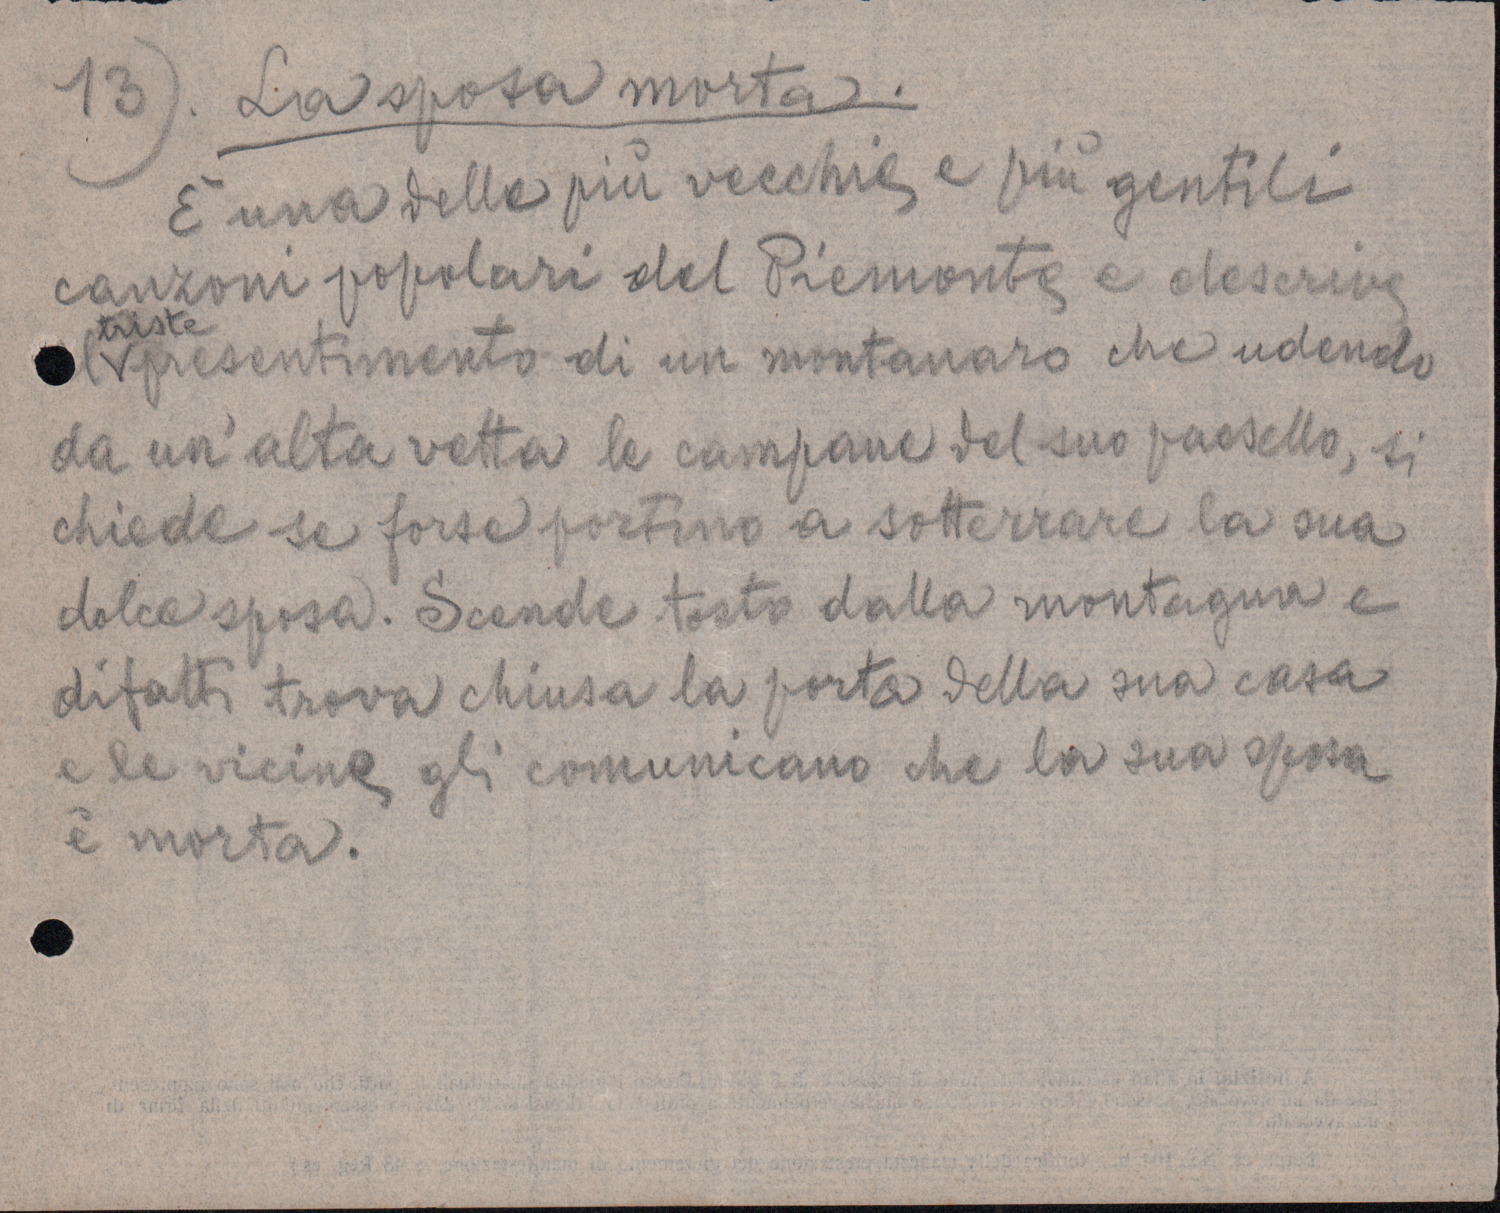 13). La sposa morta.
È una delle più vecchie e più gentili
canzoni popolari del Piemonte e descrive
triste
presentimento di un montanaro che udendo
da un' alta vetta le campane del suo paesello, si
chiede se forse portino a sotterrare la sua
dolce sposa. Scende tosto dalla montagna e
difatti trova chiusa la porta della sua casa
e le vicine gli comunicano che la sua sposa
è morta.